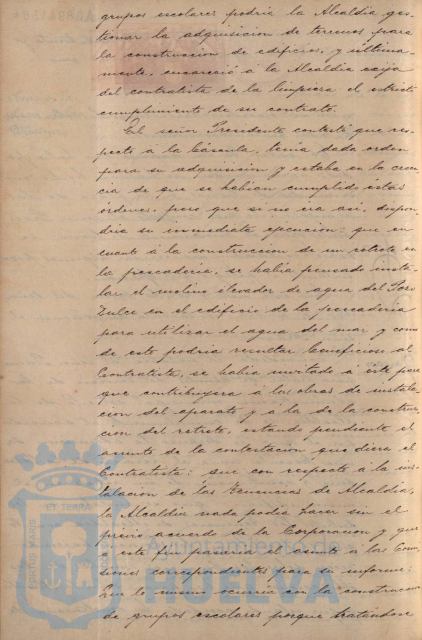 grupos escolares podria la Alcaldia ges-
tionar la adquisicion de terrenos para
la construccion de edificios, y ultima-
mente, encareció á la Alcaldia exija
del contratista de la limpieza el estricto
cumplimiento de su contrato.
El señor Presidente contestó que res-
pecto á la báscula, tenia dada orden
para su adquisicion y estaba en la creen-
cia de que se habian cumplido estas
órdenes, pero que si no era asi, dispon-
dria su inmediata ejecucion: que en
cuanto á la construccion de un retrete en
la pescaderia, se habia pensado insta-
lar el molino elevador de agua del Pozo
Dulce en el edificio de la pescaderia
para utilizar el agua del mar y como
de esto podria resultar beneficioso al
Contratista, se habia invitado á éste para
que contribuyera á las obras de instala-
cion del aparato y á la de la construc-
cion del retrete, estando pendiente el
asunto de la contestacion que diera el
Contratista: que con respecto á la ins-
talacion de las Tenencias de Alcaldia,
la Alcaldia nada podia hacer sin el
previo acuerdo de la Corporacion y que
á este fin pasaria el asunto á las Comi-
siones correspondientes para su informe:
que lo mismo ocurria con la construccion
de grupos escolares porque tratándose
PORTUS MARIS
ET TERRÆ
Ayuntamiento de
HUELVA